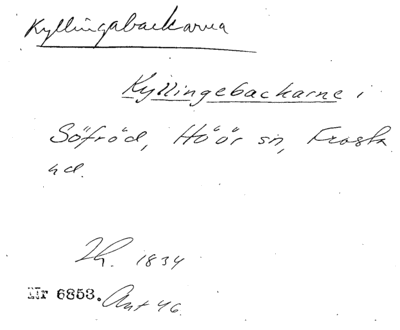 Kyllingabackarna
Kyllingebackarne i
Söfröd, Höör sn, Frosta
hd.
Lh. 1834
Nr 6853. Ant 46.